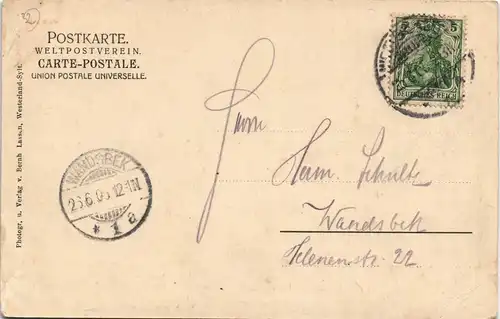 2
POSTKARTE.
WELTPOSTVEREIN.
CARTE-POSTALE.
UNION POSTALE UNIVERSELLE.
5
DEUTSCHES REICH
Photogr. u. Verlag v. Bernh Lassen, Westerland-Sylt.
WANDSBEK
* 1 a
Herrn
Herm. Schulte
Wandsbek
Helenenstr. 22.